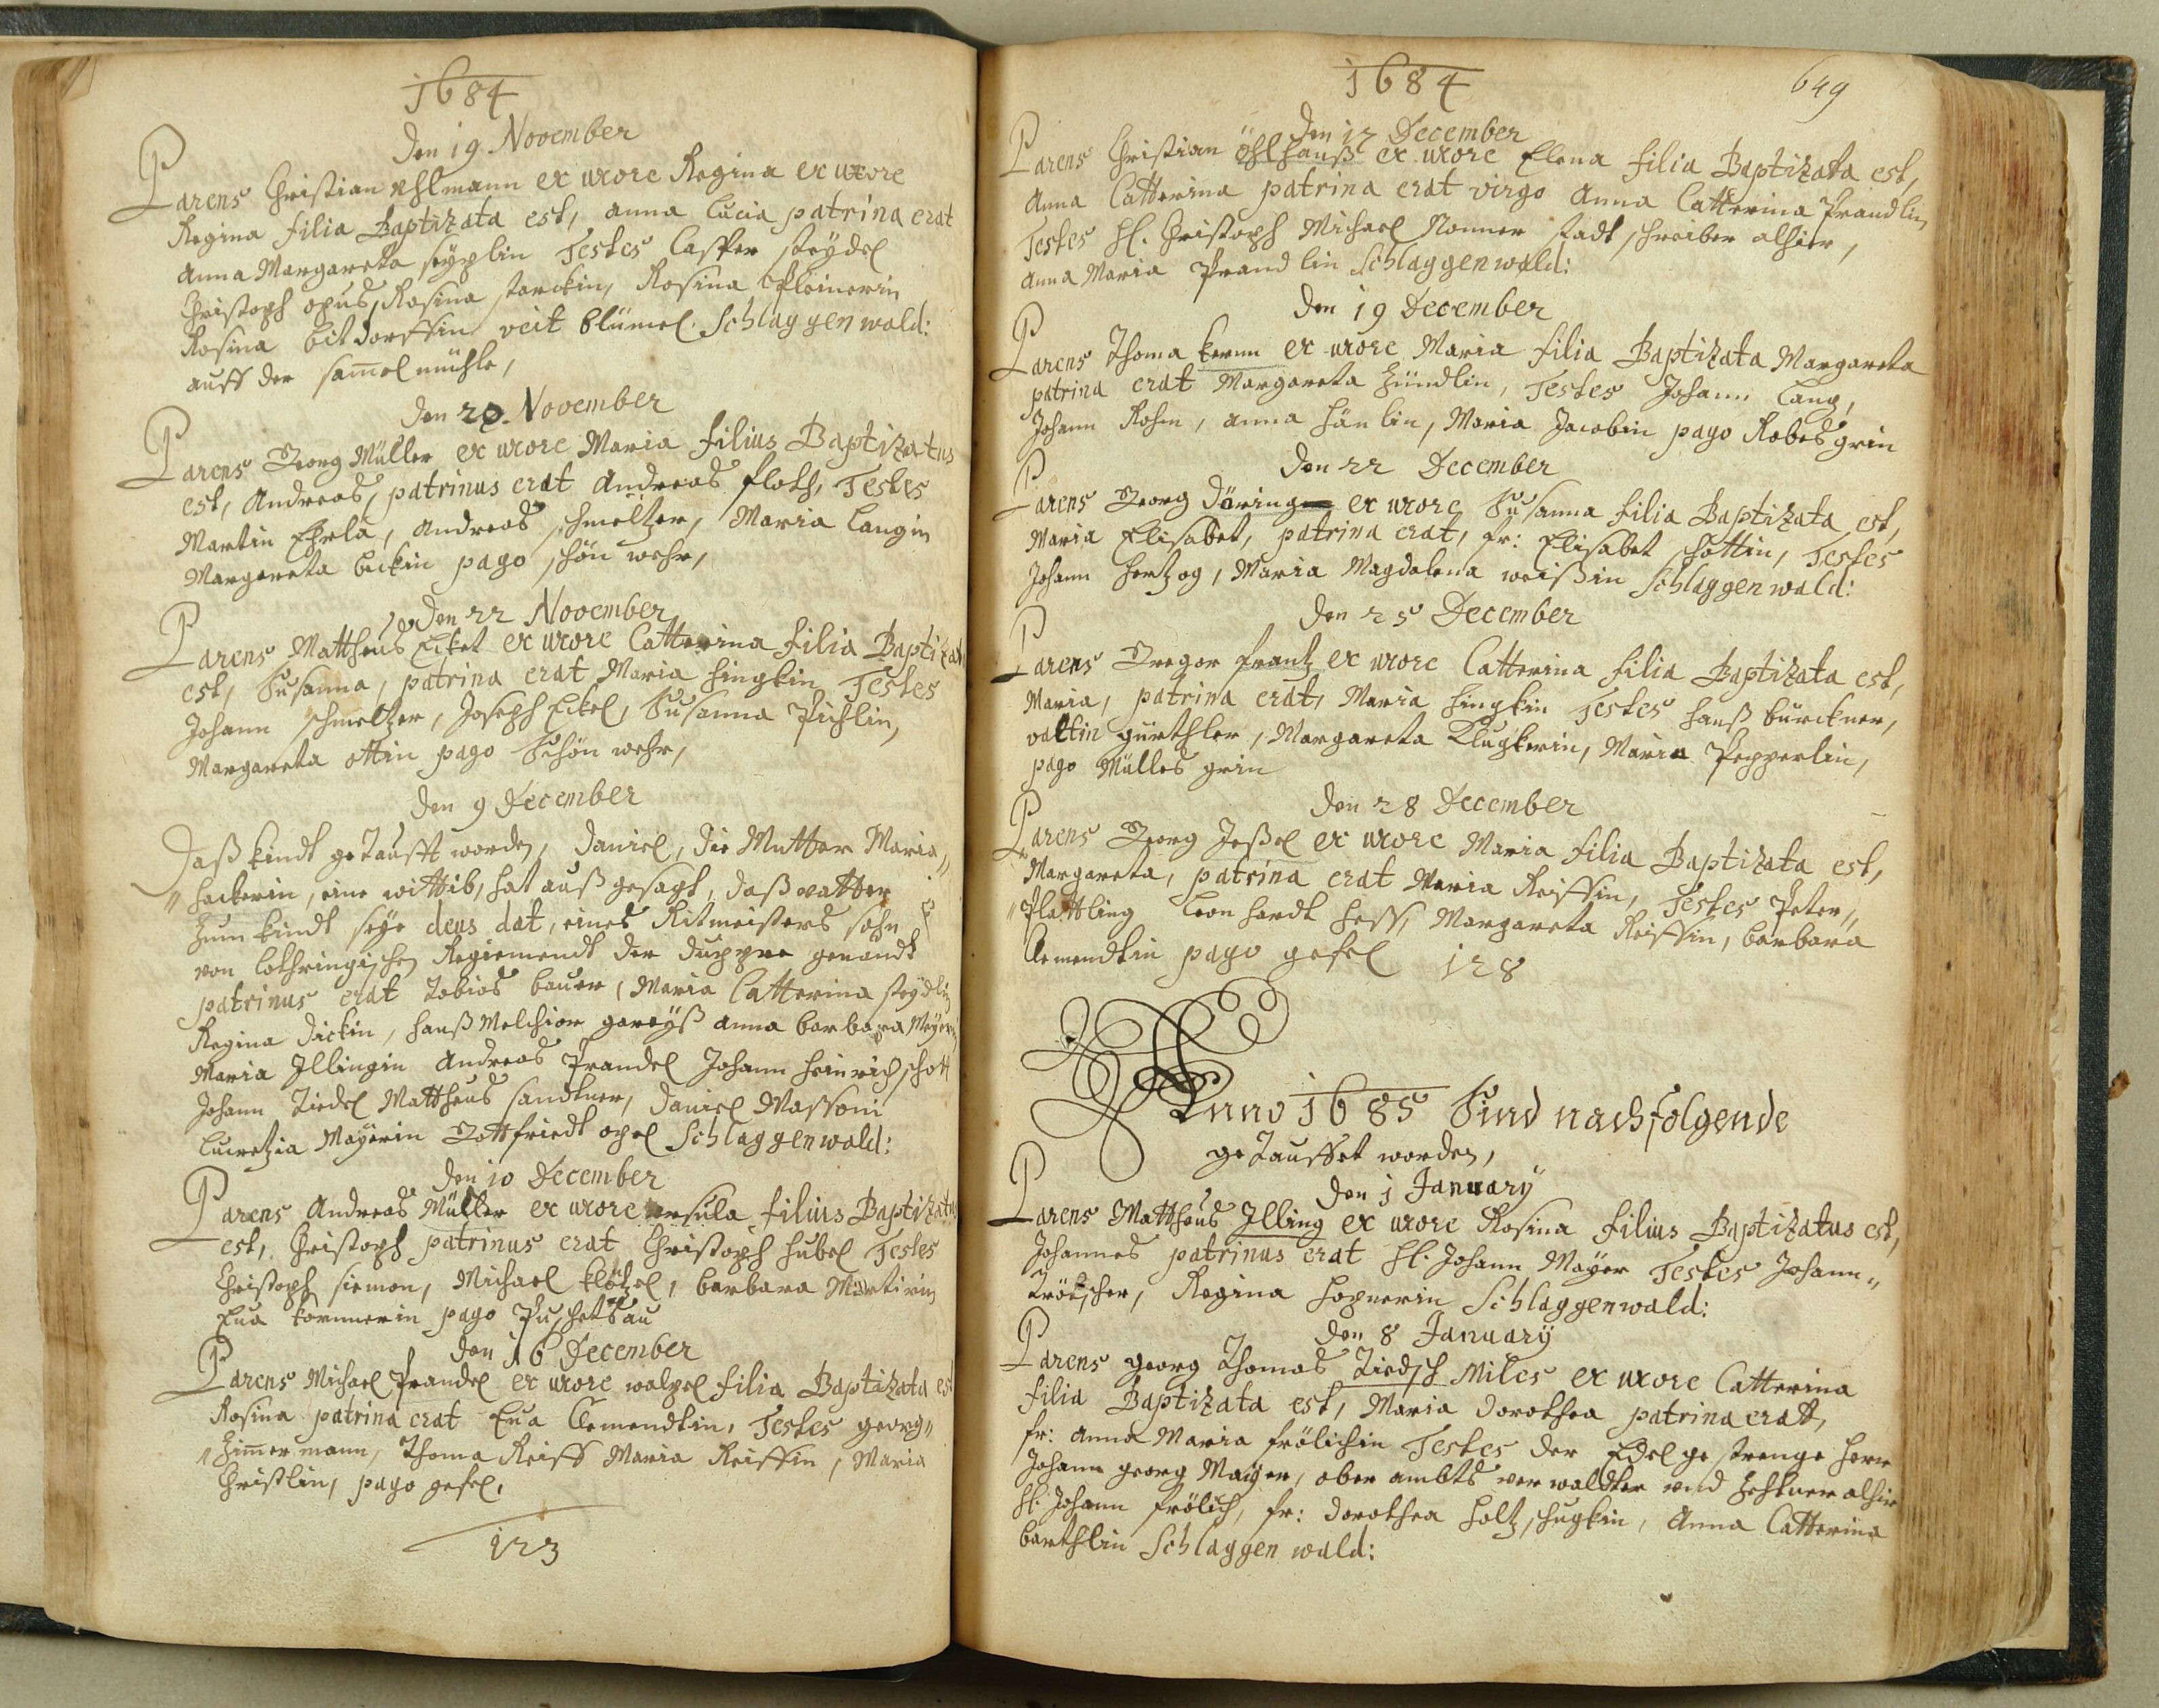 1684
Den 19 November
Parens Christian Uhlmann ex uxore Regina ex uxore
Regina filia Baptizata est, Anna Lucia patrina erat
Anna Margareta Seyplin Testes Casper Seydel
Christoph opus, Rosina starckin, Rosina
Rosina veit blümel. Schlaggenwald:
auff der sam̄elmühle,
Den 20. November
Parens Georg Müller ex uxore Maria filius Baptizatus
est, Andreas, patrinus erat Andreas floth, Testes
Martin Ehrla, Andreas schmeltzer, Maria Langin
Margareta beckin pago schön wehr,
Den 22 November
Parens Mattheus Eckel ex uxore Catterina filia Baptizat
est, Susanna, patrina erat Maria hingkin Testes
Johann schmeltzer, Joseph Eckel, Susanna Pichlin,
Margareta ottin pago Schön wehr,
Den 9 December
Daß kindt getaufft worden, Daniel, die Mutter Maria"
" hackerin, eine wittib, hat außgesagt, daß vatter
Zum kindt seye deus dat, eines Ritmeisters sohn
von lothringischen Regiemendt der duppre genandt
patrinus erat Tobias bauer, Maria Catterina seydlin
Regina dickin, hanß Melchior gareyß Anna barbara Meyerin
Maria Illingin Andreas Prandel Johann Heinrich schott
Johann Ziedel Mattheus sandtner, Daniel Massoni
Lucretzia Mayerin Gottfriedt opel Schlaggenwald:
Den 10 December
Parens Andreas Müller ex uxore ursula filius Baptizatus
est, Christoph patrinus erat Christoph hubel Testes
Christoph siemon, Michael klötzel, barbara Martirin
Eua kornnerin pago Puschetsau
Den 16 December
Parens Michael Prandel ex uxore walpel filia Baptizata est
Rosina patrina erat Eua Clemendtin, Testes georg"
" Zim̄ermann, Thoma Reiff Maria Reiffin, Maria
Christlin, pago gfel,
123
1684
649
Den 17 December
Parens Christian öhlhanß ex uxore Elena filia Baptizata est,
Anna Catterina patrina erat virgo Anna Catterina Prandlin
Testes hl. Christoph Michael Nonner stadt schreiber alhier,
Anna Maria Prandlin Schlaggenwald:
Den 19 December
Parens Thoma kernn ex uxore Maria filia Baptizata Margareta
patrina erat Margareta Zündlin, Testes Johann Lang,
Johann Rohm, Anna hänlin, Maria Jacobin pago Robesgrin
Den 22 December
Parens Georg Döring ex uxore Susanna filia Baptizata est,
Maria Elisabet, patrina erat, fr: Elisabet schottin, Testes
Johann hertzog, Maria Magdalena weißin Schlaggenwald:
Den 25 December
Parens Gregor frantz ex uxore Catterina filia Baptizata est,
Maria, patrina erat, Maria hingkin Testes hanß bürckner,
valtin gürthler, Margareta Klugkerin, Maria Pepperlin,
pago Mülles grin
Den 28 December
Parens Georg Jeßel ex uxore Maria filia Baptizata est,
Margareta, patrina erat Maria Reiffin, Testes Peter"
" Plattling Leonhardt hess, Margareta Reiffin, barbara
Clemendtin pago gefel 128
Anno 1685 Sind nachfolgende
getauffet worden,
Den 1 January
Parens Mattheus Illing ex uxore Rosina filius Baptizatus est,
Johannes patrinus erat hl. Johann Mayer Testes Johann"
Trötscher, Regina hopnerin Schlaggenwald:
Den 8 January
Parens georg Thomas Ziedsch Miles ex uxore Catterina
filia Baptizata est, Maria Dorothea patrina eratt,
fr: Anna Maria frölichin Testes der Edel gestrenge herr
Johann georg Mayer, ober ambts verwaldter und Zehtner alhir
hl. Johann frölich, fr: dorothea holtzschugkin, Anna Catterina
barthlin Schlaggen wald: